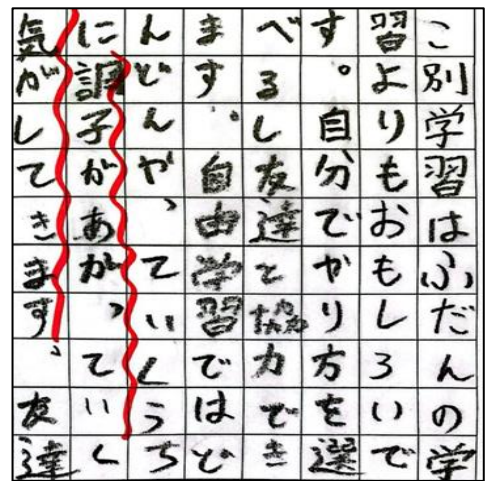 こ別学習はふだんの学
習よりもおもしろいで
す。自分でやり方を選
べるし友達と協力でき
ます。自由学習ではど
んどんやっていくうち
に調子があがっていく
気がしてきます。友達